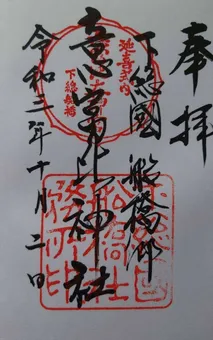 奉拝
下総國 船橋
意富比神社
令和二年十月二日
延喜式内
下総船橋